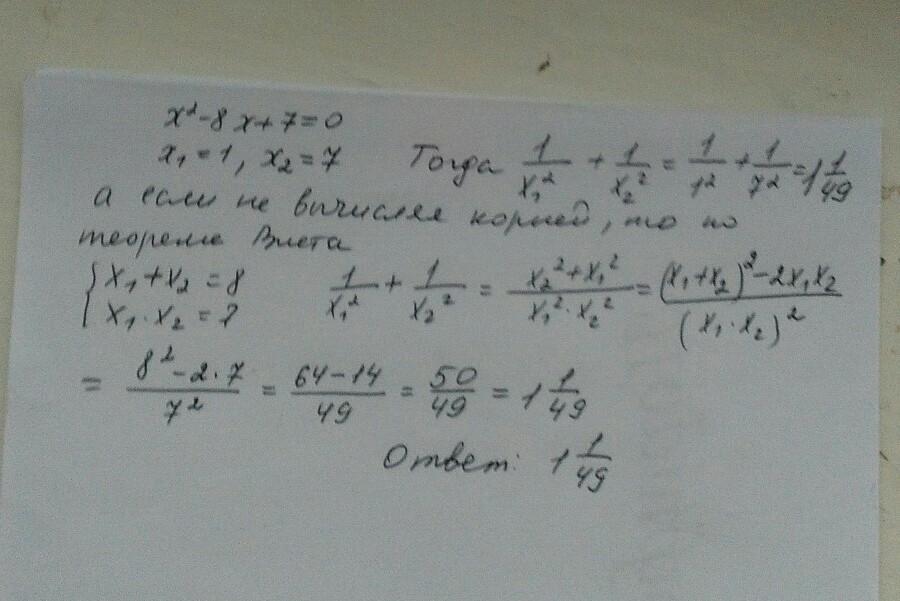 x²-8x+7=0
x₁=1, x₂=7 Тогда 1/x₁² + 1/x₂² = 1/1² + 1/7² = 1 1/49
а если не вычисляя корней, то по
теореме Виета
{ x₁+x₂ = 8
{ x₁·x₂ = 7
1/x₁² + 1/x₂² = (x₂²+x₁²)/(x₁²·x₂²) = ((x₁+x₂)²-2x₁x₂)/(x₁·x₂)²
= (8²-2·7)/7² = (64-14)/49 = 50/49 = 1 1/49
Ответ: 1 1/49